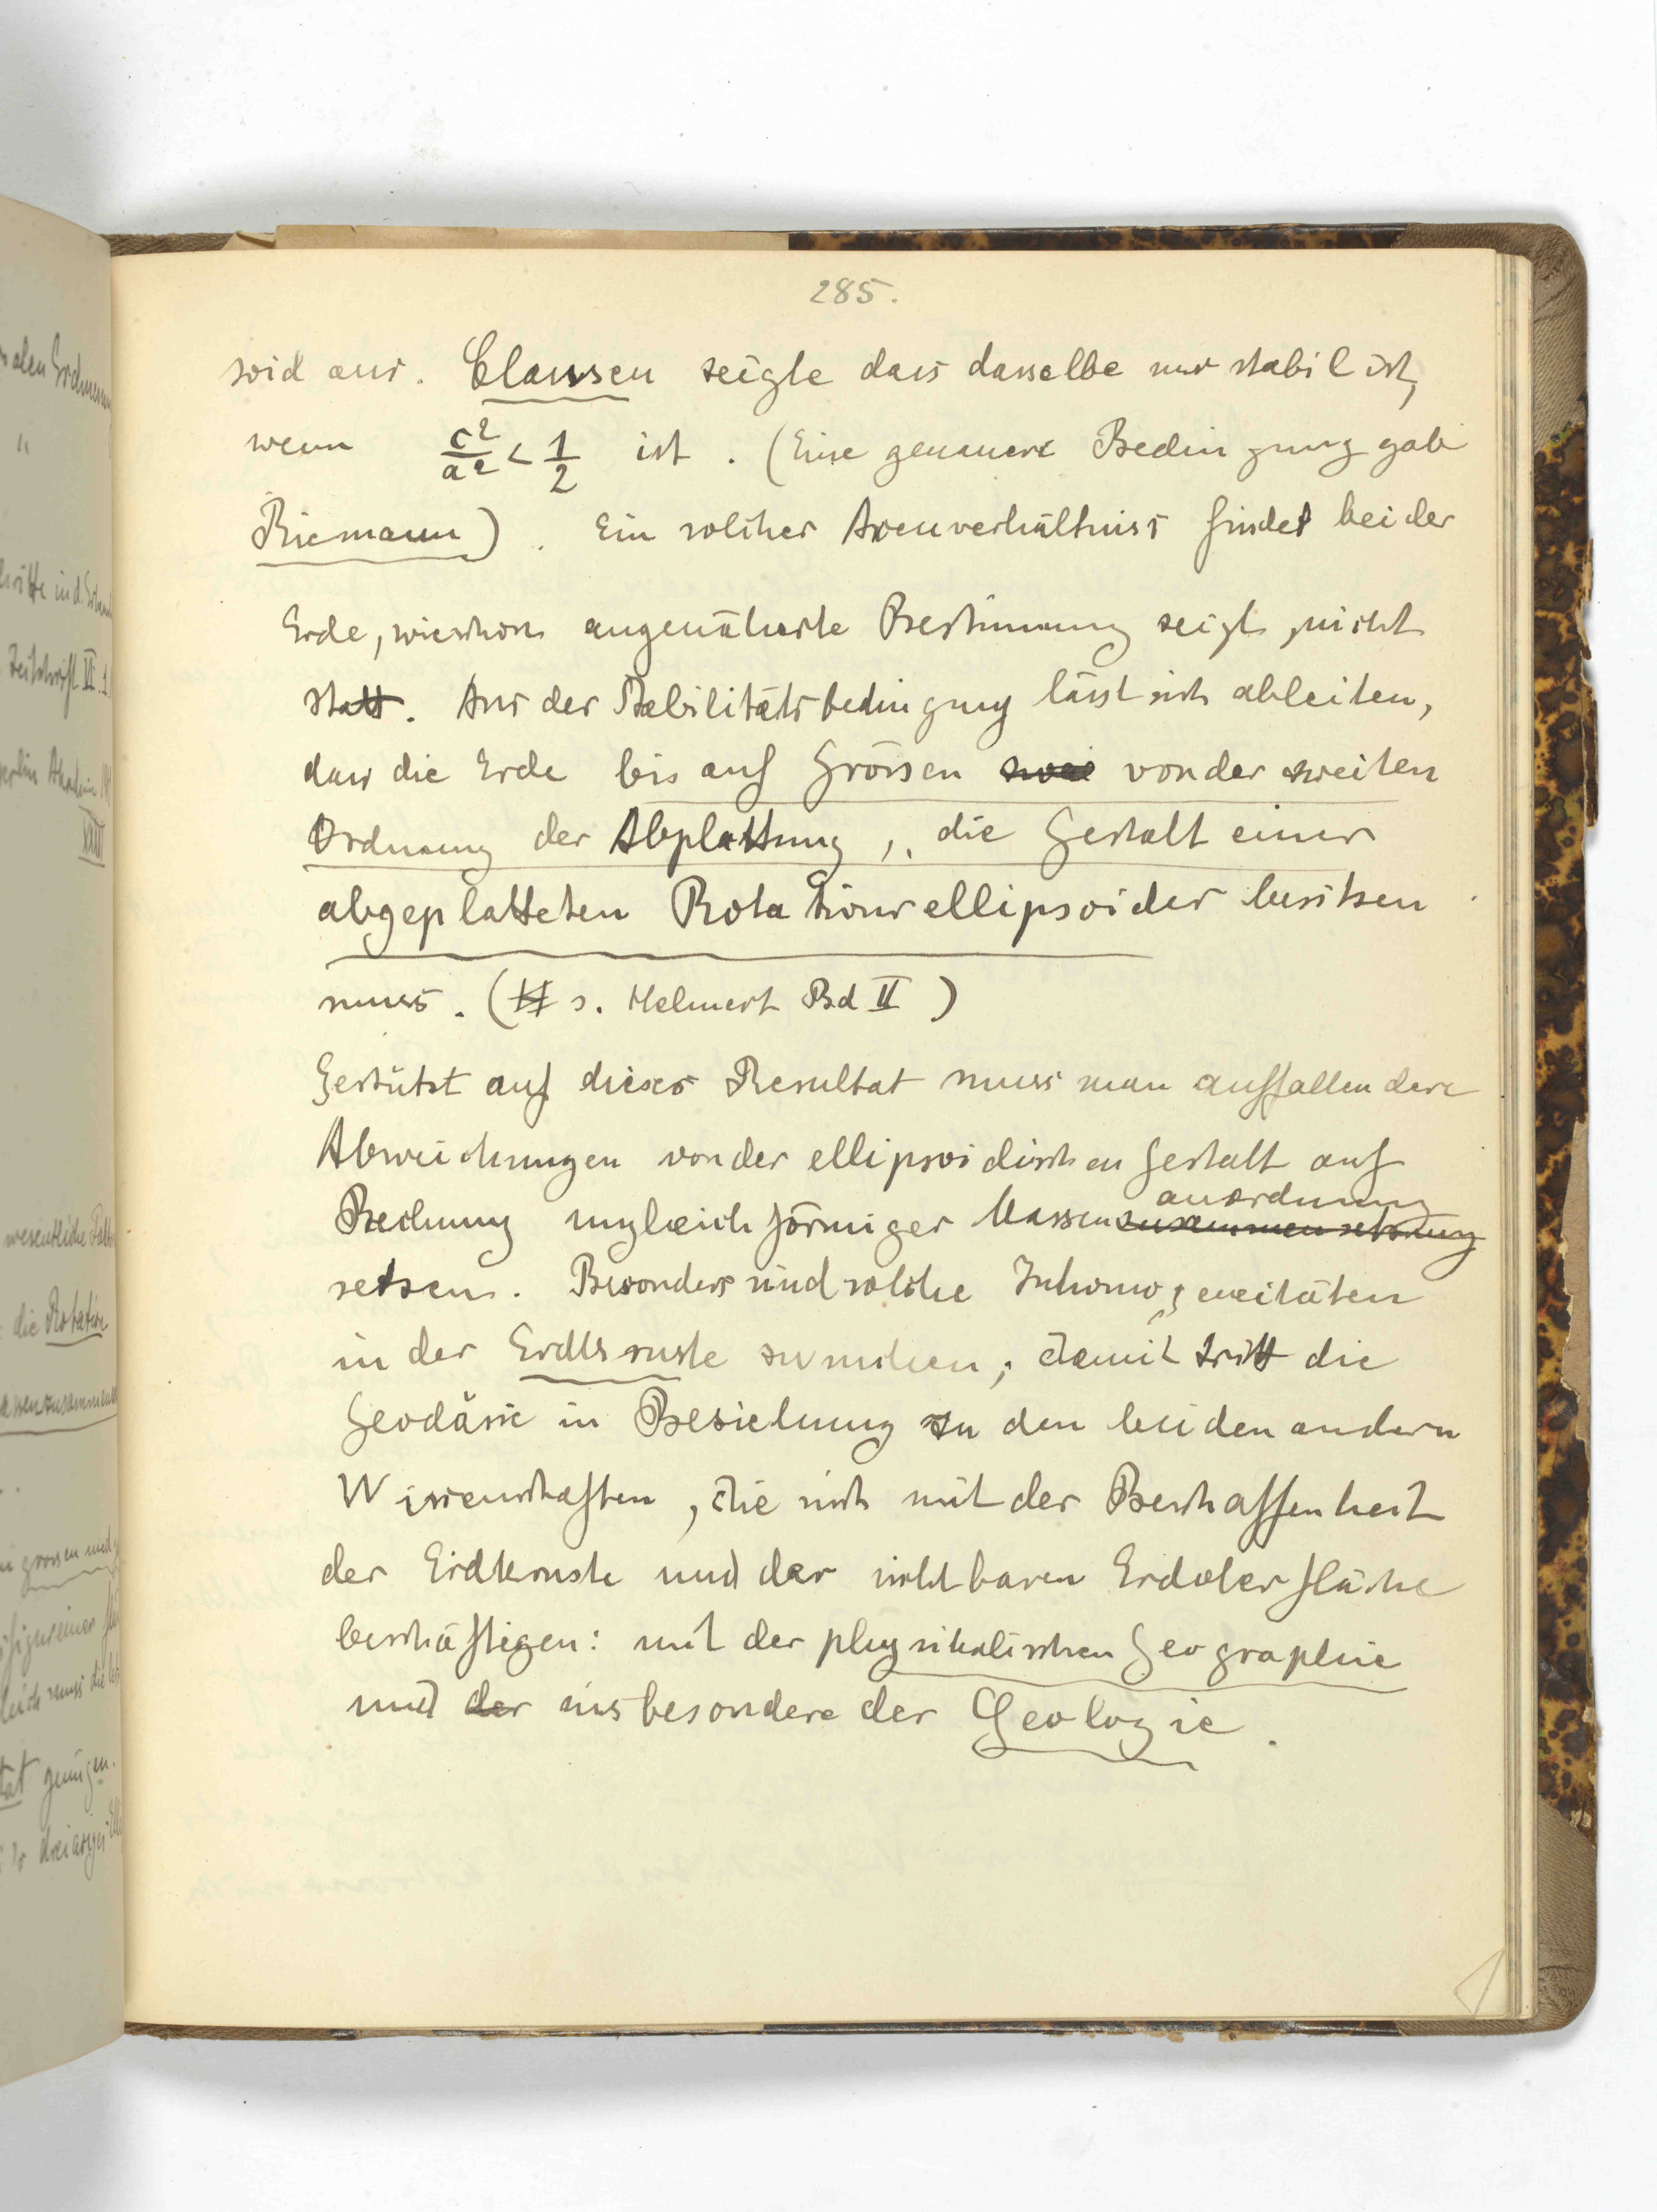 285.
soid aus. Clausen zeigte dass dasselbe nur stabil ist,
wenn c²/a² < 1/2 ist. (Eine genauere Bedingung gab
Riemann). Ein solches Axenverhältniss findet bei der
Erde, wie schon angenäherte Bestimmung zeigt, nicht
statt. Aus der Stabilitätsbedingung lässt sich ableiten,
dass die Erde bis auf Grössen von der zweiten
Ordnung der Abplattung, die Gestalt eines
abgeplatteten Rotationsellipsoides besitzen
muss. (s. Helmert Bd II)
Gestützt auf dieses Resultat muss man auffallendere
Abweichungen von der ellipsoidischen Gestalt auf
anordnung
Rechnung ungleichförmiger Massenzusammensetzung
setzen. Besonders sind solche Inhomogeneitäten
in der Erdkruste zu suchen; damit tritt die
Geodäsie in Beziehung zu den beiden andern
Wissenschaften, die sich mit der Beschaffenheit
der Erdkruste und der sichtbaren Erdoberfläche
beschäftigen: mit der physikalischen Geographie
und der insbesondere der Geologie.